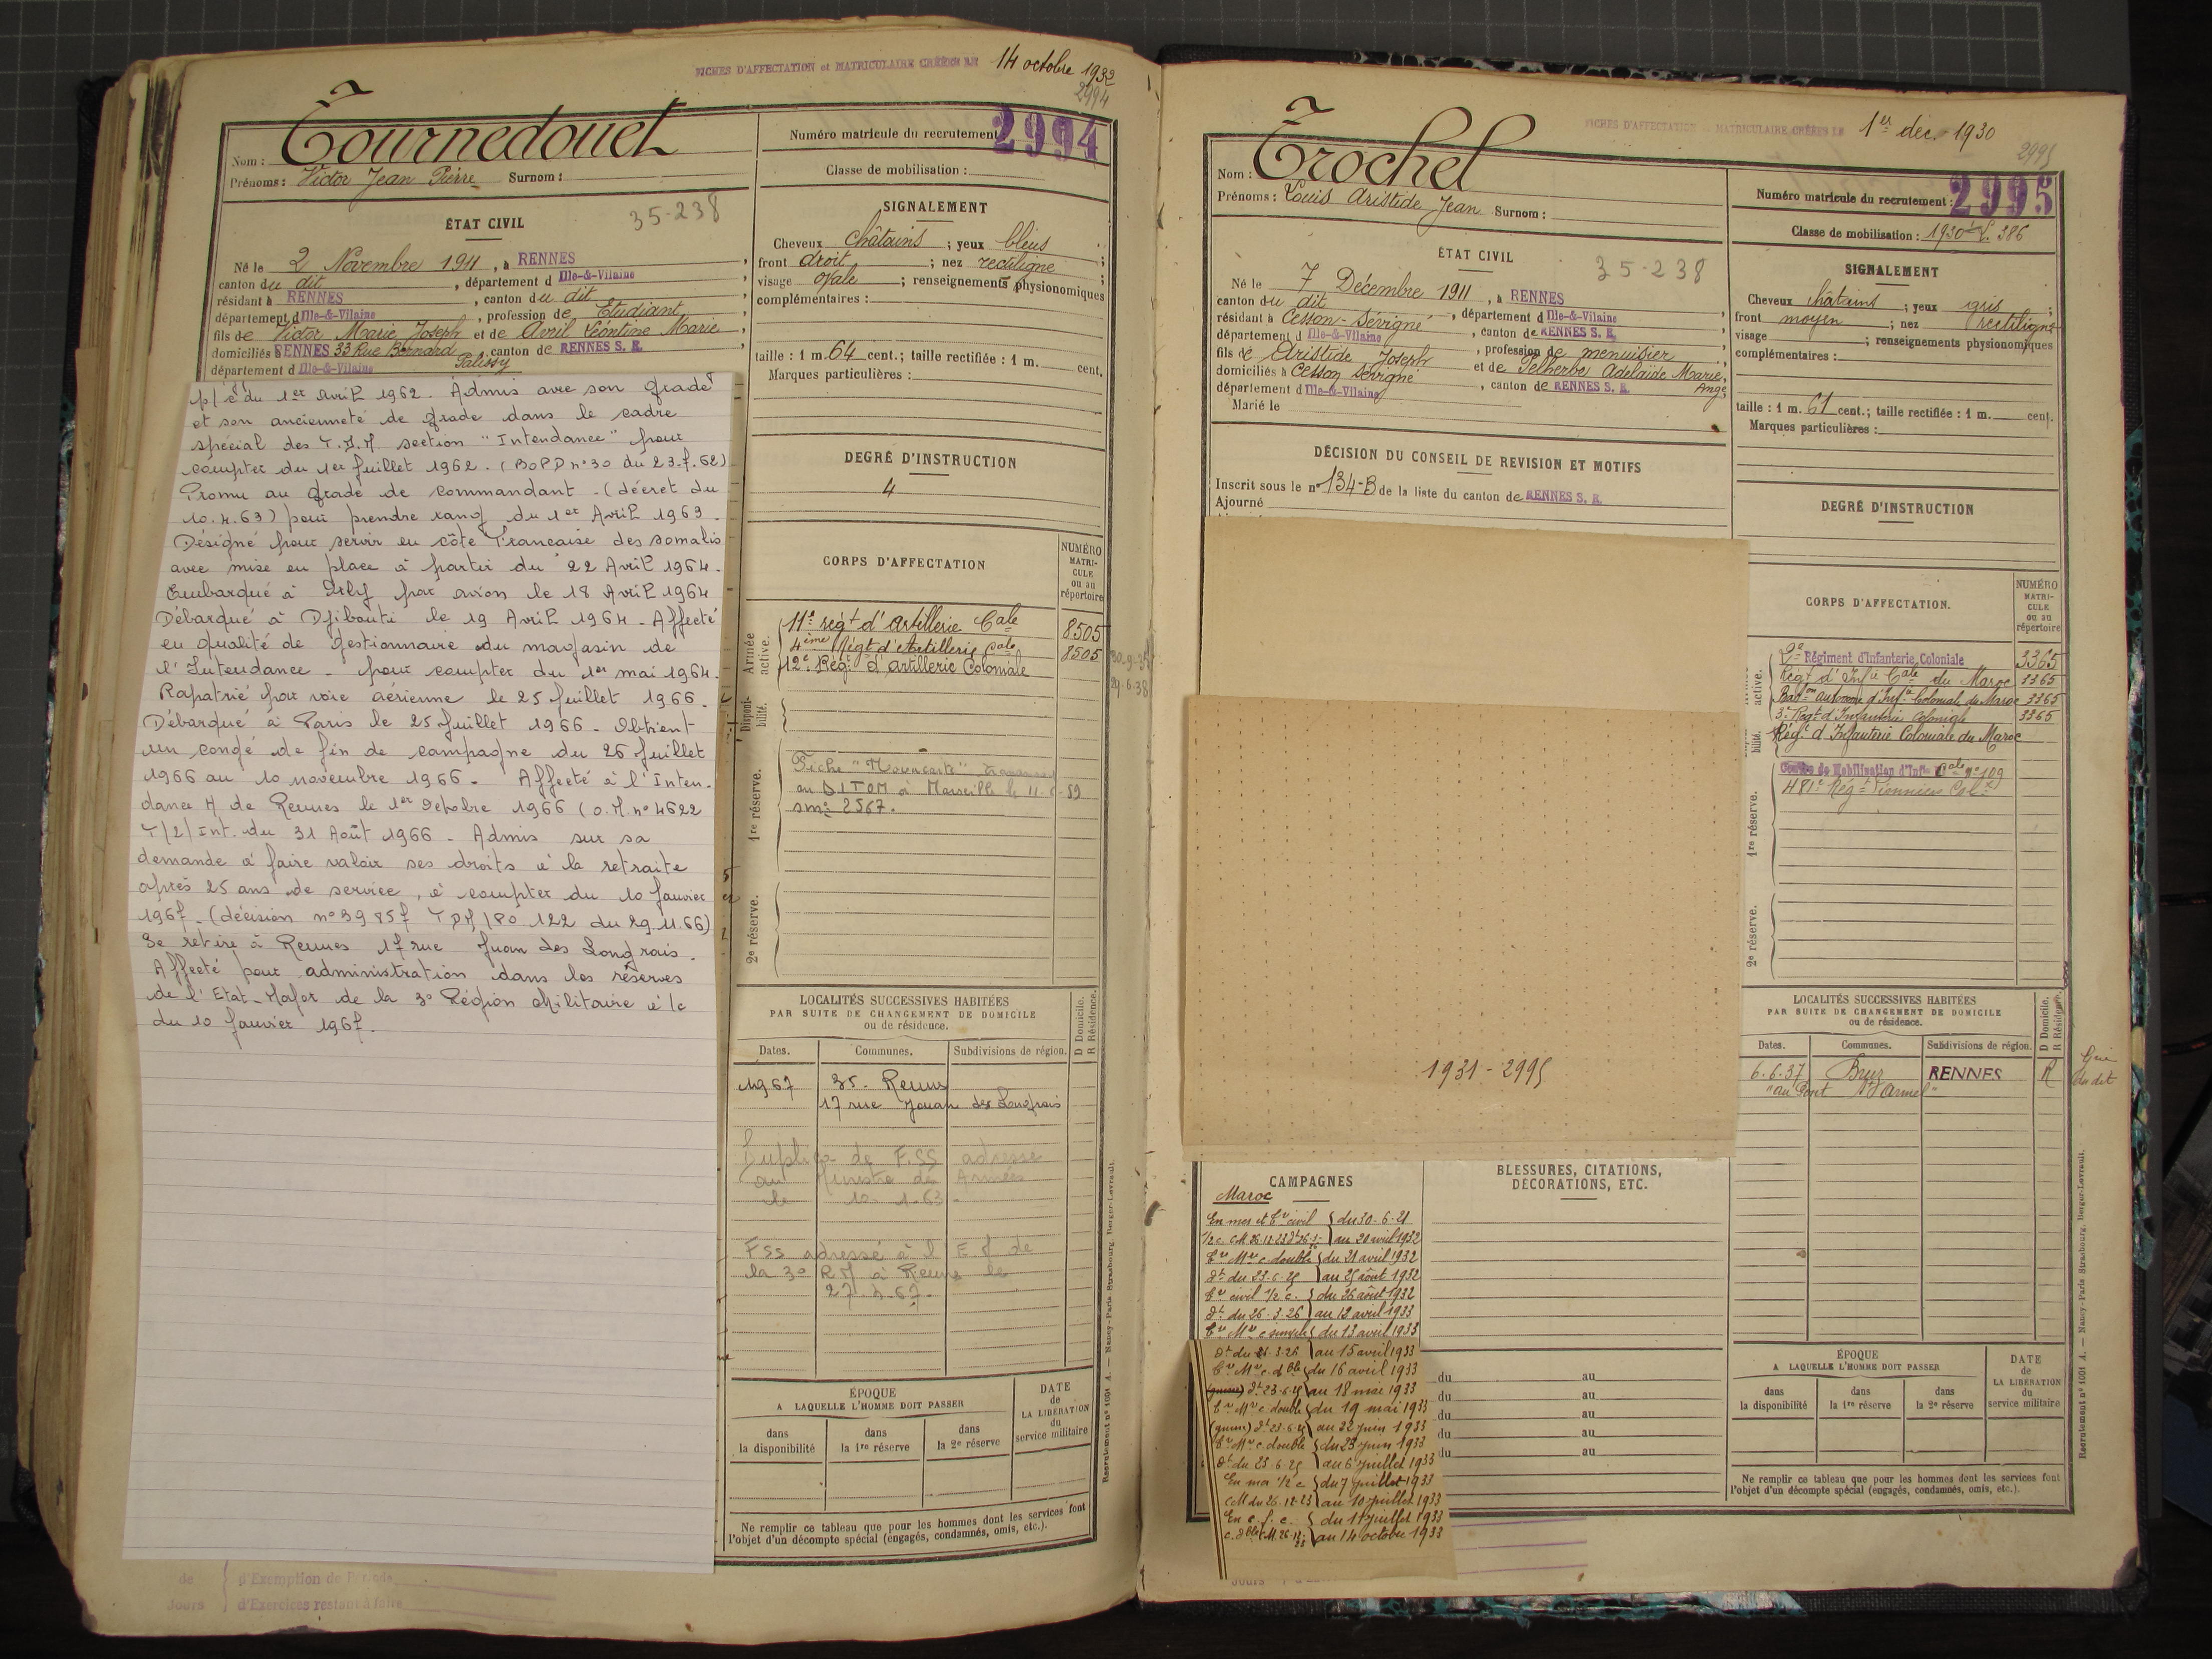 FICHES D'AFFECTATION et MATRICULAIRE CRÉÉES LE 14 octobre 1932
2994
Nom : Tournedouet
Prénoms : Victor Jean Pierre Surnom :
Numéro matricule du recrutement 2994
Classe de mobilisation :
35-238
ÉTAT CIVIL
Né le 2 Novembre 1911, à RENNES
canton du dit, département d Ille-&-Vilaine
résidant à RENNES, canton du dit
département d Ille-&-Vilaine, profession de Etudiant,
fils de Victor Marie Joseph et de Avril Léontine Marie
domiciliés à RENNES 33 Rue Bernard Palissy, canton de RENNES S. E.
département d Ille-&-Vilaine
SIGNALEMENT
Cheveux châtains ; yeux bleus ;
front droit ; nez rectiligne ;
visage ovale ; renseignements physionomiques
complémentaires :
taille : 1 m. 64 cent.; taille rectifiée : 1 m. cent.
Marques particulières :
DEGRÉ D'INSTRUCTION
4
CORPS D'AFFECTATION
NUMÉRO MATRI-CULE ou au répertoire
Armée active.
11e régt d'Artillerie Cale 8505
4ème Régt d'Artillerie cole 8505
12e Régt d'artillerie Coloniale
Disponi-bilité.
1re réserve.
Fiche "Mouvcarte"
au DITOM à Marseille le 11
2567.
2e réserve.
p/c du 1er Avril 1962. Admis avec son grade
et son ancienneté de grade dans le cadre
spécial des T.D.M section "Intendance" pour
compter du 1er juillet 1962. (BOPD n°30 du 23.7.62)
Promu au grade de commandant - (décret du
10.4.63) pour prendre rang du 1er Avril 1963.
Désigné pour servir en côte Française des somalis
avec mise en place à partir du 22 Avril 1964.
Embarqué à Orly par avion le 18 Avril 1964
Débarqué à Djibouti le 19 Avril 1964. Affecté
en qualité de gestionnaire du magasin de
l'Intendance - pour compter du 1er mai 1964.
Rapatrié par voie aérienne le 25 juillet 1966.
Débarqué à Paris le 25 juillet 1966. Obtient
un congé de fin de campagne du 26 juillet
1966 au 10 novembre 1966. Affecté à l'Inten-
dance M de Rennes le 1er Octobre 1966 (O.M. n° 4622
T/2/Int. du 31 Août 1966 - Admis sur sa
demande à faire valoir ses droits à la retraite
après 25 ans de service, à compter du 10 janvier
1967. (décision n°39857 TDM/PO 122 du 29.11.66)
Se retire à Rennes 17 rue Juan des Longrais.
Affecté pour administration dans les réserves
de l'Etat-Major de la 3e Région Militaire à/c
du 10 janvier 1967.
LOCALITÉS SUCCESSIVES HABITÉES
PAR SUITE DE CHANGEMENT DE DOMICILE
ou de résidence.
D Domicile.
R Résidence.
Dates. Communes. Subdivisions de région.
1967 35. Rennes
17 rue Jouan des Longrais
Duplica de F.SS adressé
au Ministre des Armées
le 10.1.63.
FSS adressé à l'E.M de
la 3e RM à Rennes le
27.4.67.
ÉPOQUE
A LAQUELLE L'HOMME DOIT PASSER
dans la disponibilité
dans la 1re réserve
dans la 2e réserve
DATE de LA LIBÉRATION du service militaire
Ne remplir ce tableau que pour les hommes dont les services font
l'objet d'un décompte spécial (engagés, condamnés, omis, etc.).
Recrutement n° 1001 A. — Nancy-Paris-Strasbourg, Berger-Levrault.
de
Jours
d'Exemption de Période
d'Exercices restant à faire
FICHES D'AFFECTATION et MATRICULAIRE CRÉÉES LE 1er déc. 1930
2995
Nom : Trochel
Prénoms : Louis Aristide Jean Surnom :
Numéro matricule du recrutement : 2995
Classe de mobilisation : 1930
35-238
ÉTAT CIVIL
Né le 7 Décembre 1911, à RENNES
canton du dit, département d Ille-&-Vilaine
résidant à Cesson-Sévigné, canton de RENNES S. E.
département d Ille-&-Vilaine, profession de menuisier
fils de Aristide Joseph et de Pelherbe Adelaïde Marie Ange
domiciliés à Cesson Sévigné, canton de RENNES S. E.
département d Ille-&-Vilaine
Marié le
DÉCISION DU CONSEIL DE REVISION ET MOTIFS
Inscrit sous le n° 134-B de la liste du canton de RENNES S. E.
Ajourné
SIGNALEMENT
Cheveux châtains ; yeux gris ;
front moyen ; nez rectiligne
visage ; renseignements physionomiques
complémentaires :
taille : 1 m. 61 cent.; taille rectifiée : 1 m. cent.
Marques particulières :
DEGRÉ D'INSTRUCTION
CORPS D'AFFECTATION.
NUMÉRO MATRI-CULE ou au répertoire
active.
2e Régiment d'Infanterie Coloniale 3365
Régt d'Infie Cale du Maroc 3365
Baton autonome d'Infie Coloniale du Maroc 3365
3e Régt d'Infanterie Coloniale 3365
Régt d'Infanterie Coloniale du Maroc
bilité.
Centre de Mobilisation d'Infie Cale n° 109
481e Régt Pionniers Col.
1re réserve.
2e réserve.
1931 - 2995
CAMPAGNES
Maroc
En mer et Tre civil du 30-6-21
au 20 avril 1932
Tre Mre c double du 21 avril 1932
dt du 23-6-25 au 25 août 1932
Tre civil 1/2 c. du 26 août 1932
dt du 26-3-26 au 12 avril 1933
Tre Mre c simple du 13 avril 1933
au 15 avril 1933
Tre Mre c. dble du 16 avril 1933
dt 23-6-25 au 18 mai 1933
Tre Mre c double du 19 mai 1933
(guerre) dt 23-6-25 au 22 juin 1933
Tre Mre c. double du 23 juin 1933
dt du 23-6-25 au 6 juillet 1933
En mer 1/2 c du 7 juillet 1933
CM du 26-12-23 au 10 juillet 1933
En c. f. c. du 11 juillet 1933
au 14 octobre 1933
BLESSURES, CITATIONS,
DÉCORATIONS, ETC.
du au
du au
du au
du au
du au
LOCALITÉS SUCCESSIVES HABITÉES
PAR SUITE DE CHANGEMENT DE DOMICILE
ou de résidence.
D Domicile.
R Résidence.
Dates. Communes. Subdivisions de région.
6.6.37 Bruz RENNES R
"au Pont St Armel"
du dit
ÉPOQUE
A LAQUELLE L'HOMME DOIT PASSER
dans la disponibilité
dans la 1re réserve
dans la 2e réserve
DATE de LA LIBÉRATION du service militaire
Ne remplir ce tableau que pour les hommes dont les services font
l'objet d'un décompte spécial (engagés, condamnés, omis, etc.).
Recrutement n° 1001 A. — Nancy-Paris-Strasbourg, Berger-Levrault.